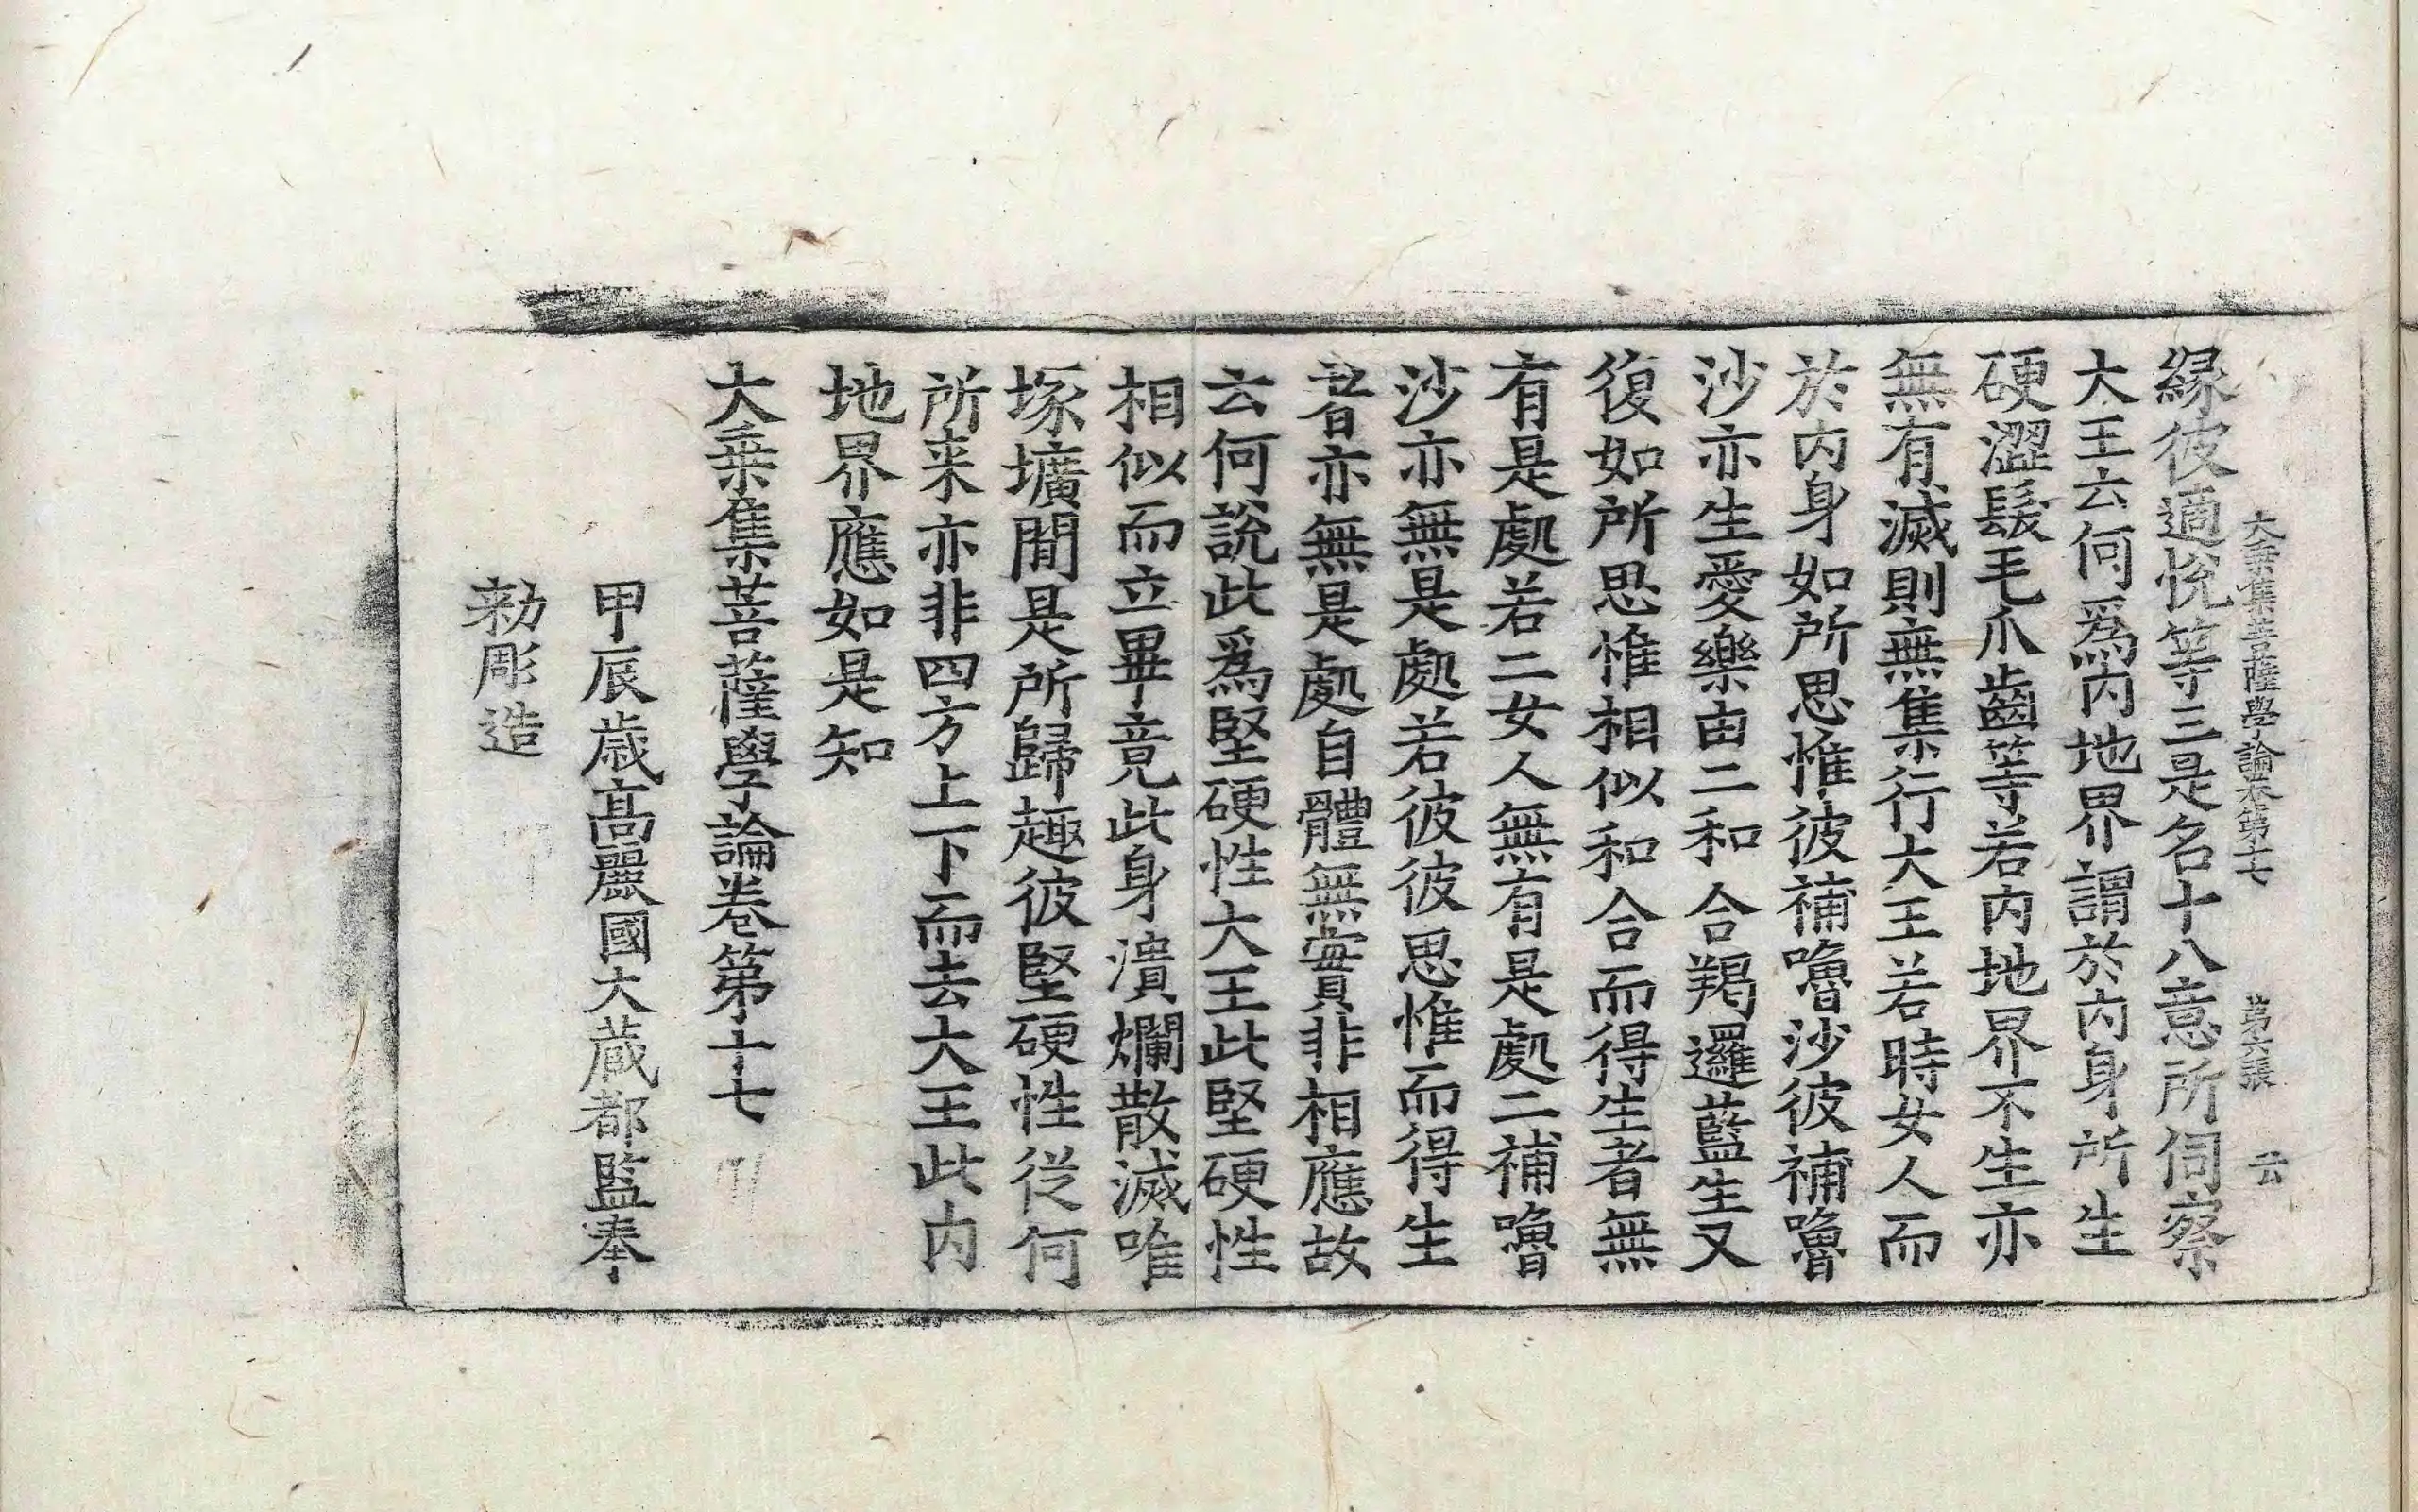 大乘集菩薩學論卷第十七 第六張 云
緣彼適悅等三是名十八意所伺察
大王云何爲內地界謂於內身所生
硬澀髮毛爪齒等若內地界不生亦
無有滅則無集行大王若時女人而
於內身如所思惟彼補嚕沙彼補嚕
沙亦生愛樂由二和合羯邏藍生又
復如所思惟相似和合而得生者無
有是處若二女人無有是處二補嚕
沙亦無是處若彼彼思惟而得生
者亦無是處自體無實非相應故
云何說此爲堅硬性大王此堅硬性
相似而立畢竟此身潰爛散滅唯
塚壙間是所歸趣彼堅硬性從何
所来亦非四方上下而去大王此內
地界應如是知
大乘集菩薩學論卷第十七
甲辰歲高麗國大藏都監奉
勅彫造